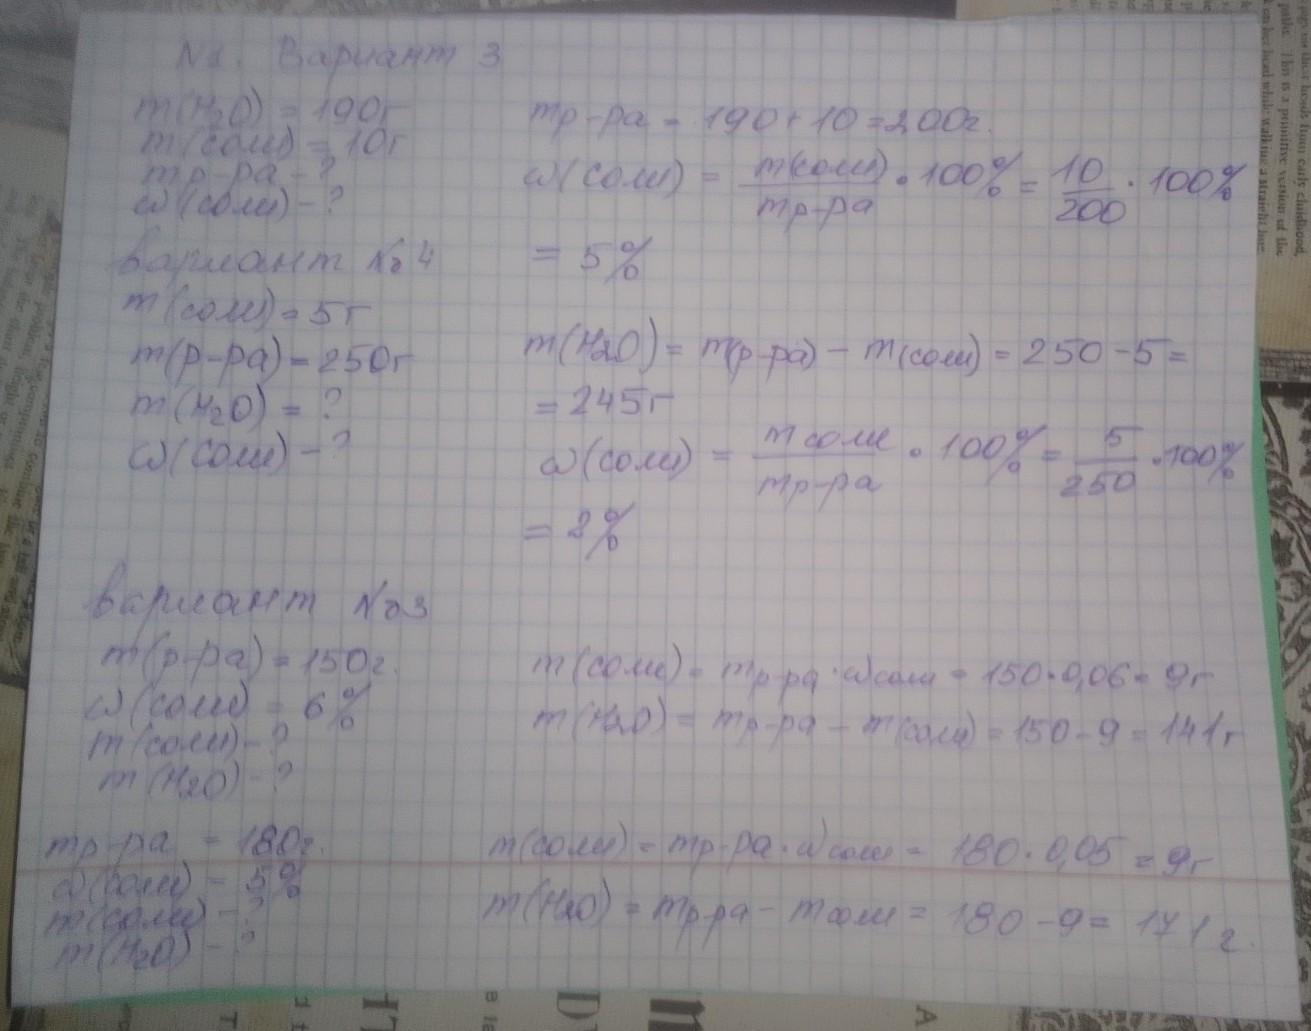 N1. Вариант 3
m(H2O) = 190г
m(соли) = 10г
mр-ра - ?
ω(соли) - ?
mр-ра = 190 + 10 = 200г.
ω(соли) = m(соли) / mр-ра • 100% = 10 / 200 · 100%
= 5%
вариант №4
m(соли) = 5г
m(р-ра) = 250г
m(H2O) = ?
ω(соли) - ?
m(H2O) = m(р-ра) - m(соли) = 250 - 5 =
= 245г
ω(соли) = m соли / mр-ра • 100% = 5 / 250 • 100%
= 2%
вариант №3
m(р-ра) = 150г.
ω(соли) = 6%
m(соли) - ?
m(H2O) - ?
m(соли) = mр-ра · ωсоли = 150 · 0,06 = 9г
m(H2O) = mр-ра - m(соли) = 150 - 9 = 141г
mр-ра = 180г.
ω(соли) - 5%
m(соли) - ?
m(H2O) - ?
m(соли) = mр-ра · ωсоли = 180 · 0,05 = 9г
m(H2O) = mр-ра - mсоли = 180 - 9 = 171г.